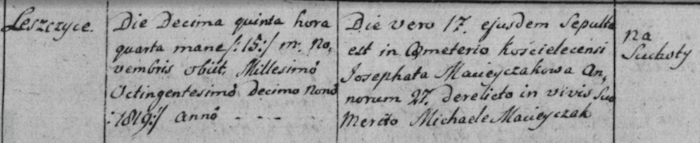 Leszczyce.
Die Decima quinta hora
quarta mane /:15:/ m. No,
vembris obiit Millesimo
Octingentesimo decimo nono
:1819:/ anno - - - -
Die vero 17. ejusdem Sepulta
est in Cœmeterio Kościelecensi
Josephata Macieyczakowa An,
norum 27. derelicto in vivis Suo
Merito Michaele Macieyczak
na
Suchoty